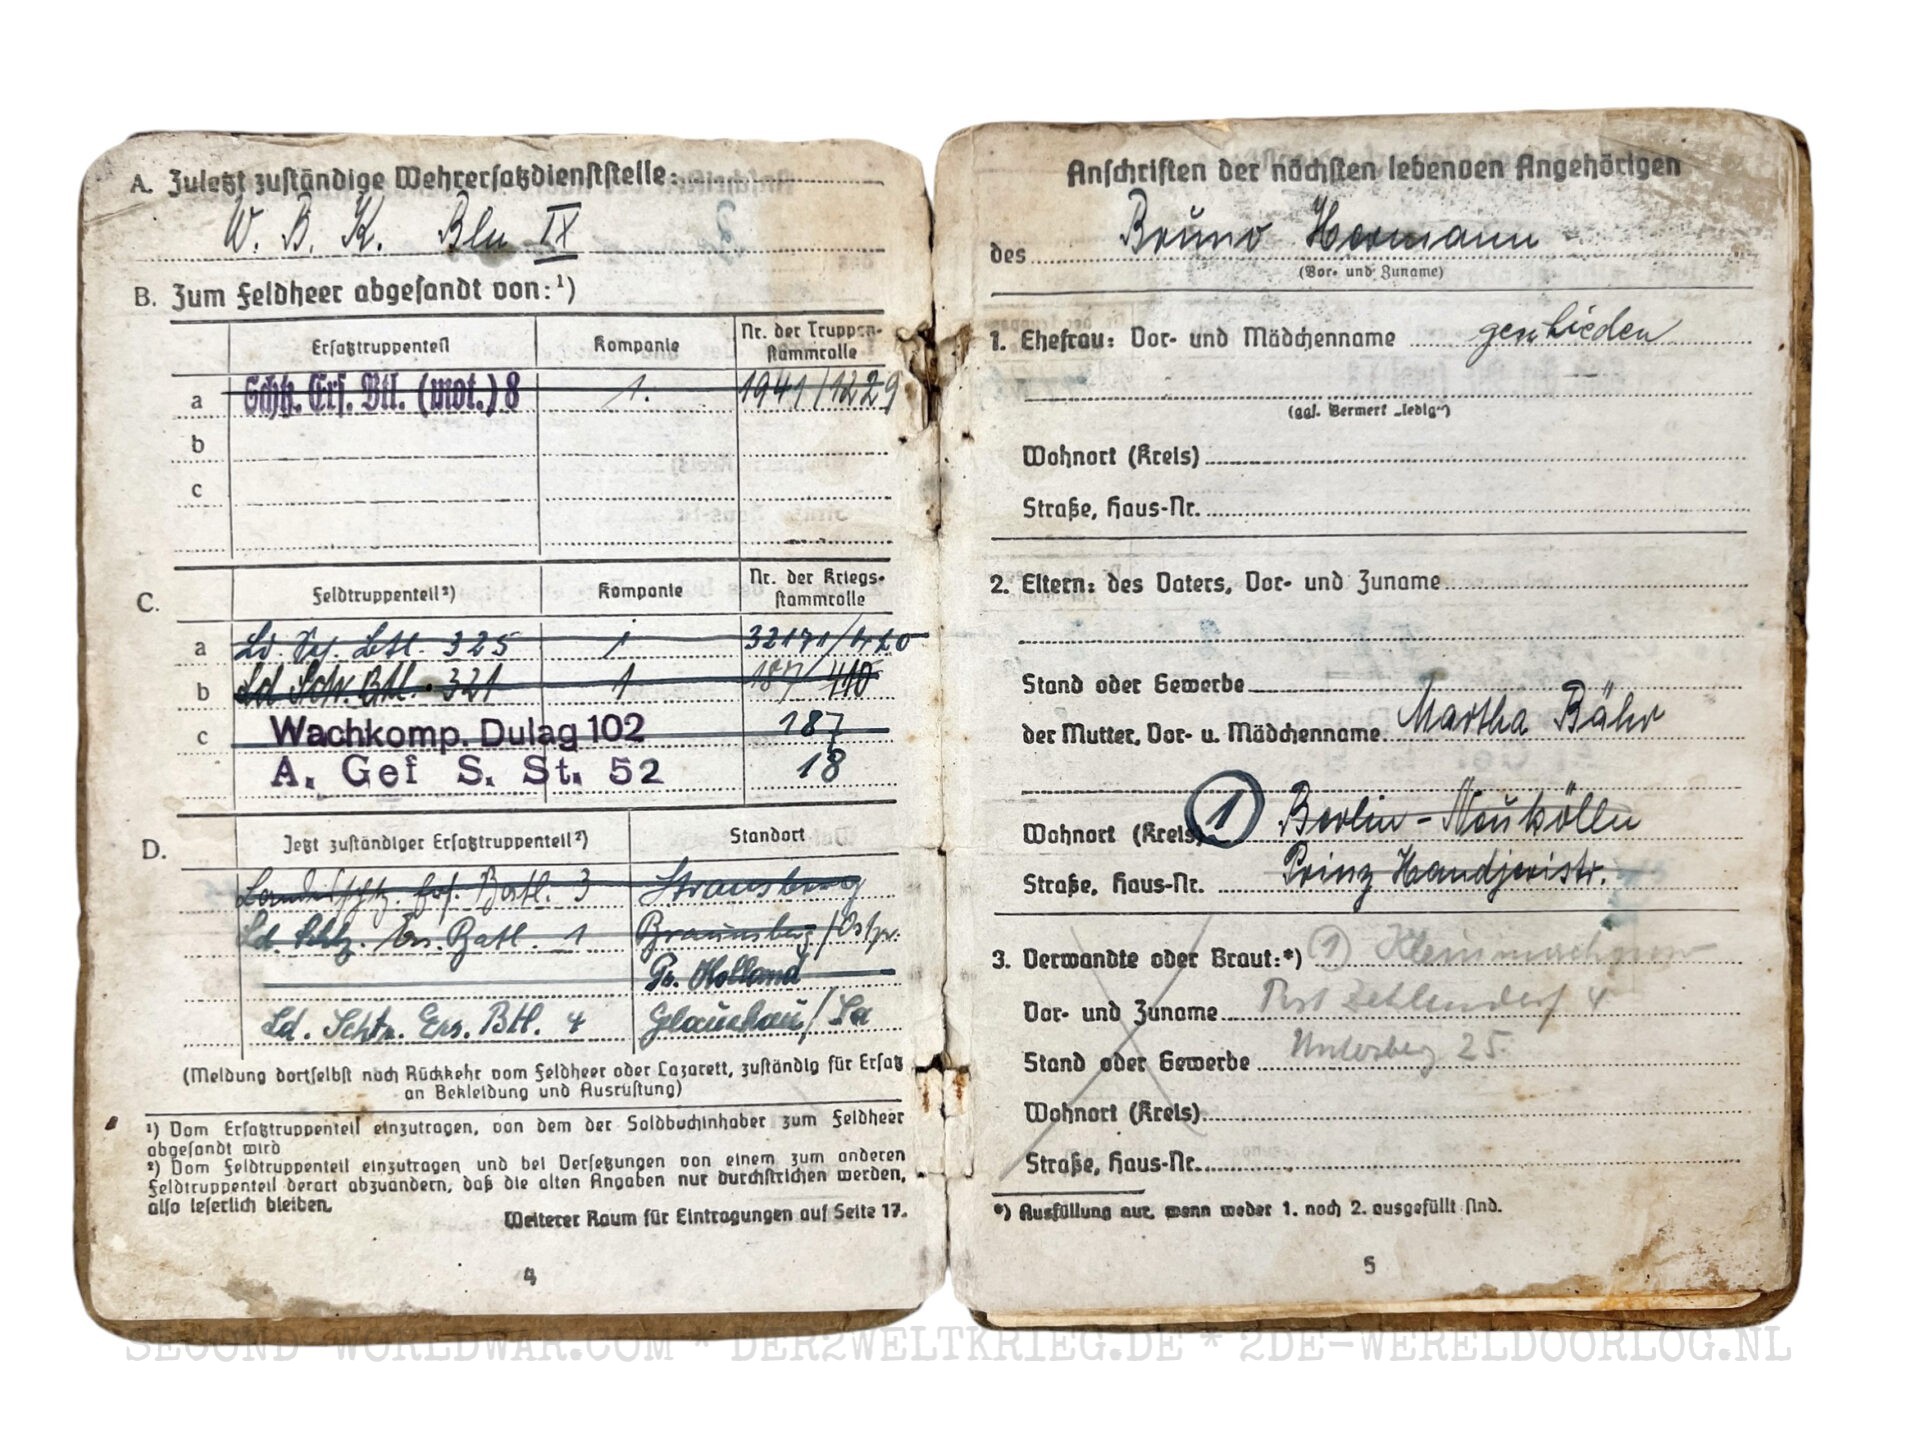 A. Zuletzt zuständige Wehrersatzdienststelle:
W. B. K. Bln IX
B. Zum Feldheer abgesandt von: ¹)
Ersatztruppenteil Kompanie Nr. der Truppen-
stammrolle
a Schtz. Ers. Btl. (mot.) 8 1. 1941/1229
b
c
C. Feldtruppenteil ²) Kompanie Nr. der Kriegs-
stammrolle
a Ld. Btl. 325 1
b Ld Sch. Btl. 321 1 187/410
c Wachkomp. Dulag 102 187
A. Gef S. St. 52 18
D. Jetzt zuständiger Ersatztruppenteil ²) Standort
Landesschtz. Ers. Batl. 3 Strausberg
Ld. Schtz. Ers. Batl. 1 Braunsberg/Ostpr.
Pr. Holland
Ld. Schtz. Ers. Btl. 4 Glauchau/Sa
(Meldung dortselbst nach Rückkehr vom Feldheer oder Lazarett, zuständig für Ersatz
an Bekleidung und Ausrüstung)
¹) Vom Ersatztruppenteil einzutragen, von dem der Soldbuchinhaber zum Feldheer
abgesandt wird
²) Vom Feldtruppenteil einzutragen und bei Versetzungen von einem zum anderen
Feldtruppenteil derart abzuändern, daß die alten Angaben nur durchstrichen werden,
also leserlich bleiben.
Weiterer Raum für Eintragungen auf Seite 17.
4
Anschriften der nächsten lebenden Angehörigen
des Bruno Hermann
(Vor- und Zuname)
1. Ehefrau: Vor- und Mädchenname geschieden
(ggf. Vermerk „ledig")
Wohnort (Kreis)
Straße, Haus-Nr.
2. Eltern: des Vaters, Vor- und Zuname
Stand oder Gewerbe
der Mutter, Vor- u. Mädchenname Martha Bähr
Wohnort (Kreis) 1 Berlin-Neukölln
Straße, Haus-Nr. Prinz Handjeristr.
3. Verwandte oder Braut:*) 1 Kleinmachnow
Vor- und Zuname Post Zehlendorf 4
Stand oder Gewerbe 25
Wohnort (Kreis)
Straße, Haus-Nr.
*) Ausfüllung nur, wenn weder 1. noch 2. ausgefüllt sind.
5
SECOND-WORLDWAR.COM * DER2WELTKRIEG.DE * 2DE-WERELDOORLOG.NL